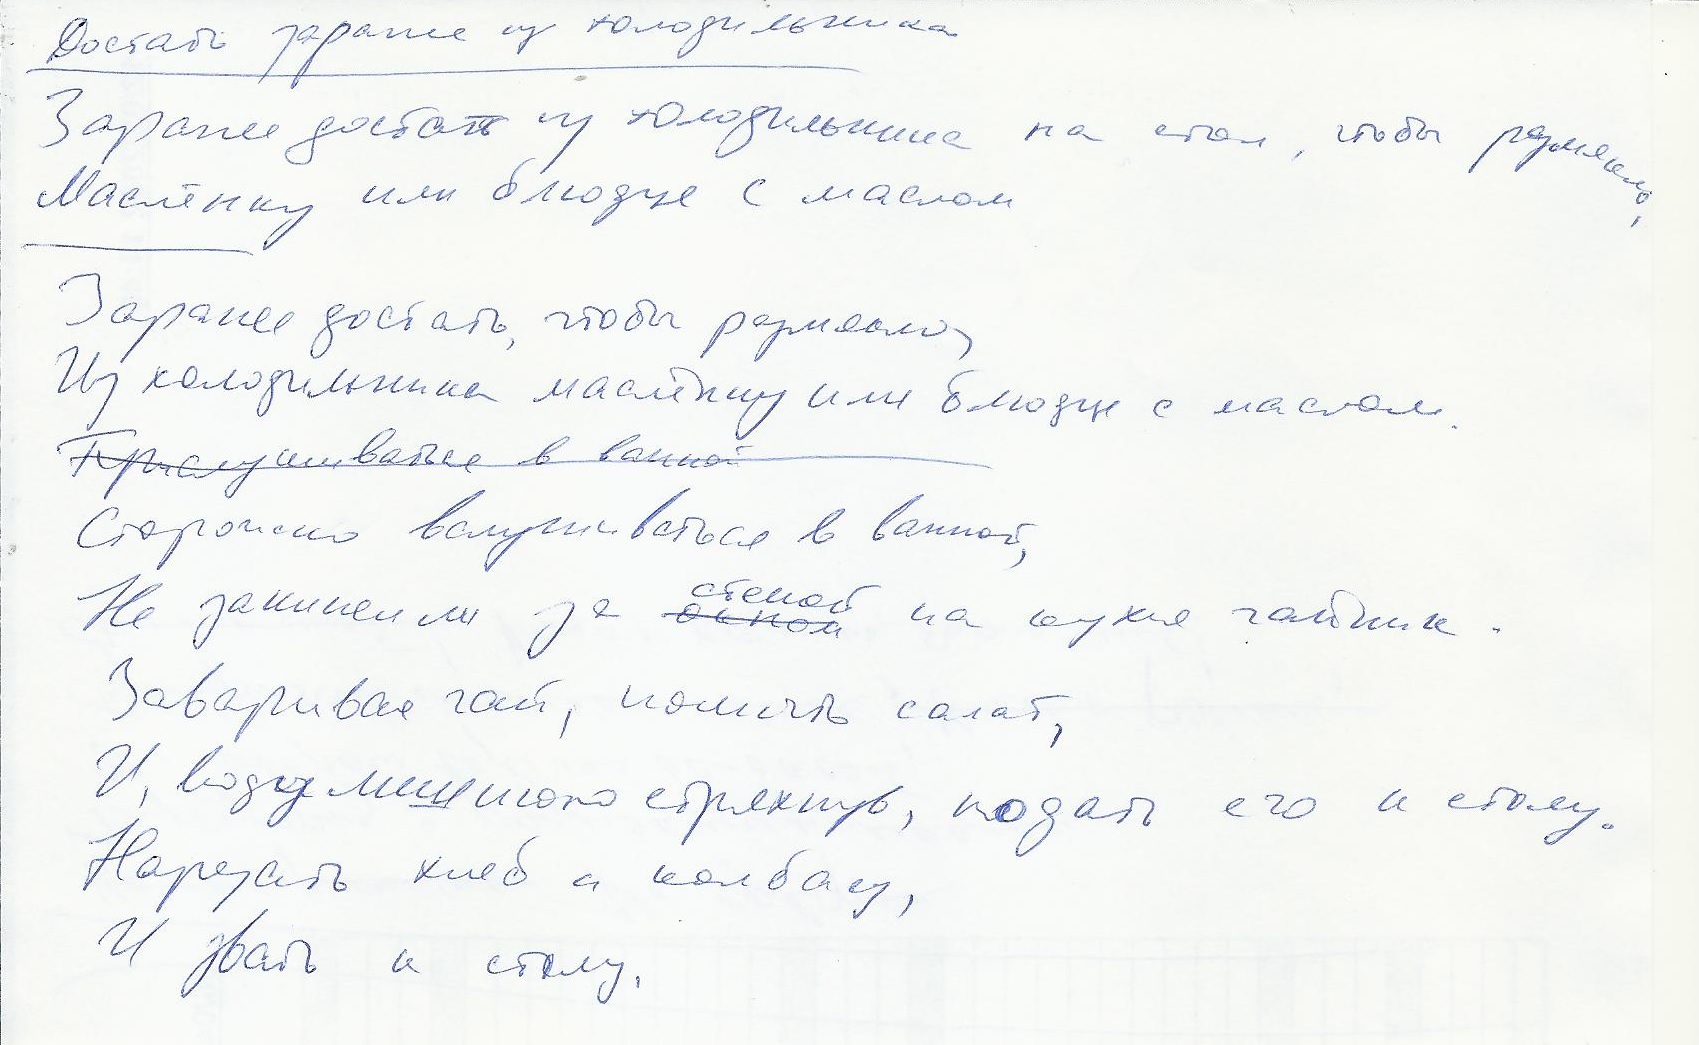 Достать заранее из холодильника
Заранее достать из холодильника на стол, чтобы размякло,
Маслёнку или блюдце с маслом
Заранее достать, чтобы размякло,
Из холодильника маслёнку или блюдце с маслом.
Прислушиваться в ванной
Сторожко вслушиваться в ванной,
стеной
Не закипел ли за окном на кухне чайник.
Заваривая чай, помыть салат,
И, воду стряхнув, подать его к столу.
Нарезать хлеб и колбасу,
И звать к столу.